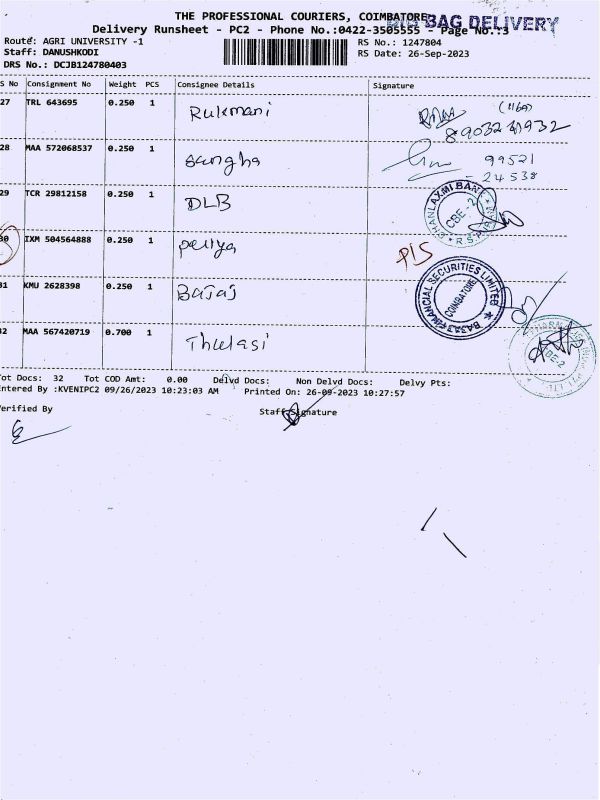 THE PROFESSIONAL COURIERS, COIMBATORE
BIG BAG DELIVERY
Delivery Runsheet - PC2 - Phone No.:0422-3505555 - Page No.:3
Route: AGRI UNIVERSITY -1
RS No.: 1247804
Staff: DANUSHKODI
RS Date: 26-Sep-2023
DRS No.: DCJB124780403
S No Consignment No Weight PCS Consignee Details Signature
27 TRL 643695 0.250 1 Rukmani (1169)
28 MAA 572068537 0.250 1 Sangha 99521
- 24538
29 TCR 29812158 0.250 1 DLB
DHANLAXMI BANK
CBE - 2
R.S.PURAM
30 IXM 504564888 0.250 1 Periya P/S
31 KMU 2628398 0.250 1 Bajaj
BAJAJ FINANCIAL SECURITIES LIMITED
COIMBATORE
32 MAA 567420719 0.700 1 Thulasi
CBE-2
Tot Docs: 32 Tot COD Amt: 0.00 Delvd Docs: Non Delvd Docs: Delvy Pts:
Entered By :KVENIPC2 09/26/2023 10:23:03 AM Printed On: 26-09-2023 10:27:57
Verified By Staff Signature